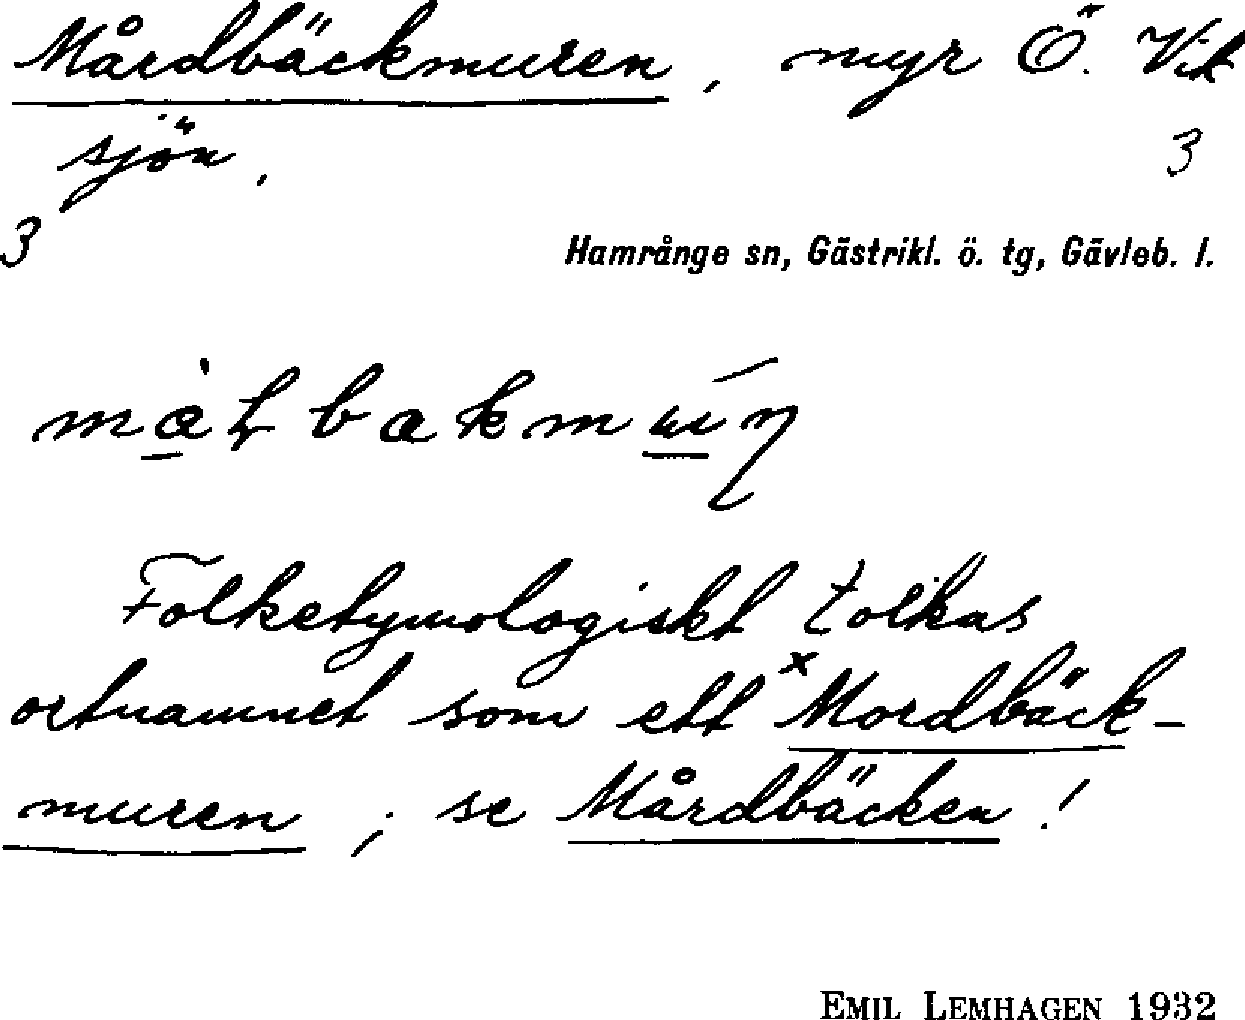 Mårdbäckmuren, myr Ö. Vik
sjön.
3
3
Hamrånge sn, Gästrikl. ö. tg, Gävleb. l.
Folketymologiskt tolkas
ortnamnet som ett ˣMordbäck-
muren; se Mårdbäcken!
EMIL LEMHAGEN 1932